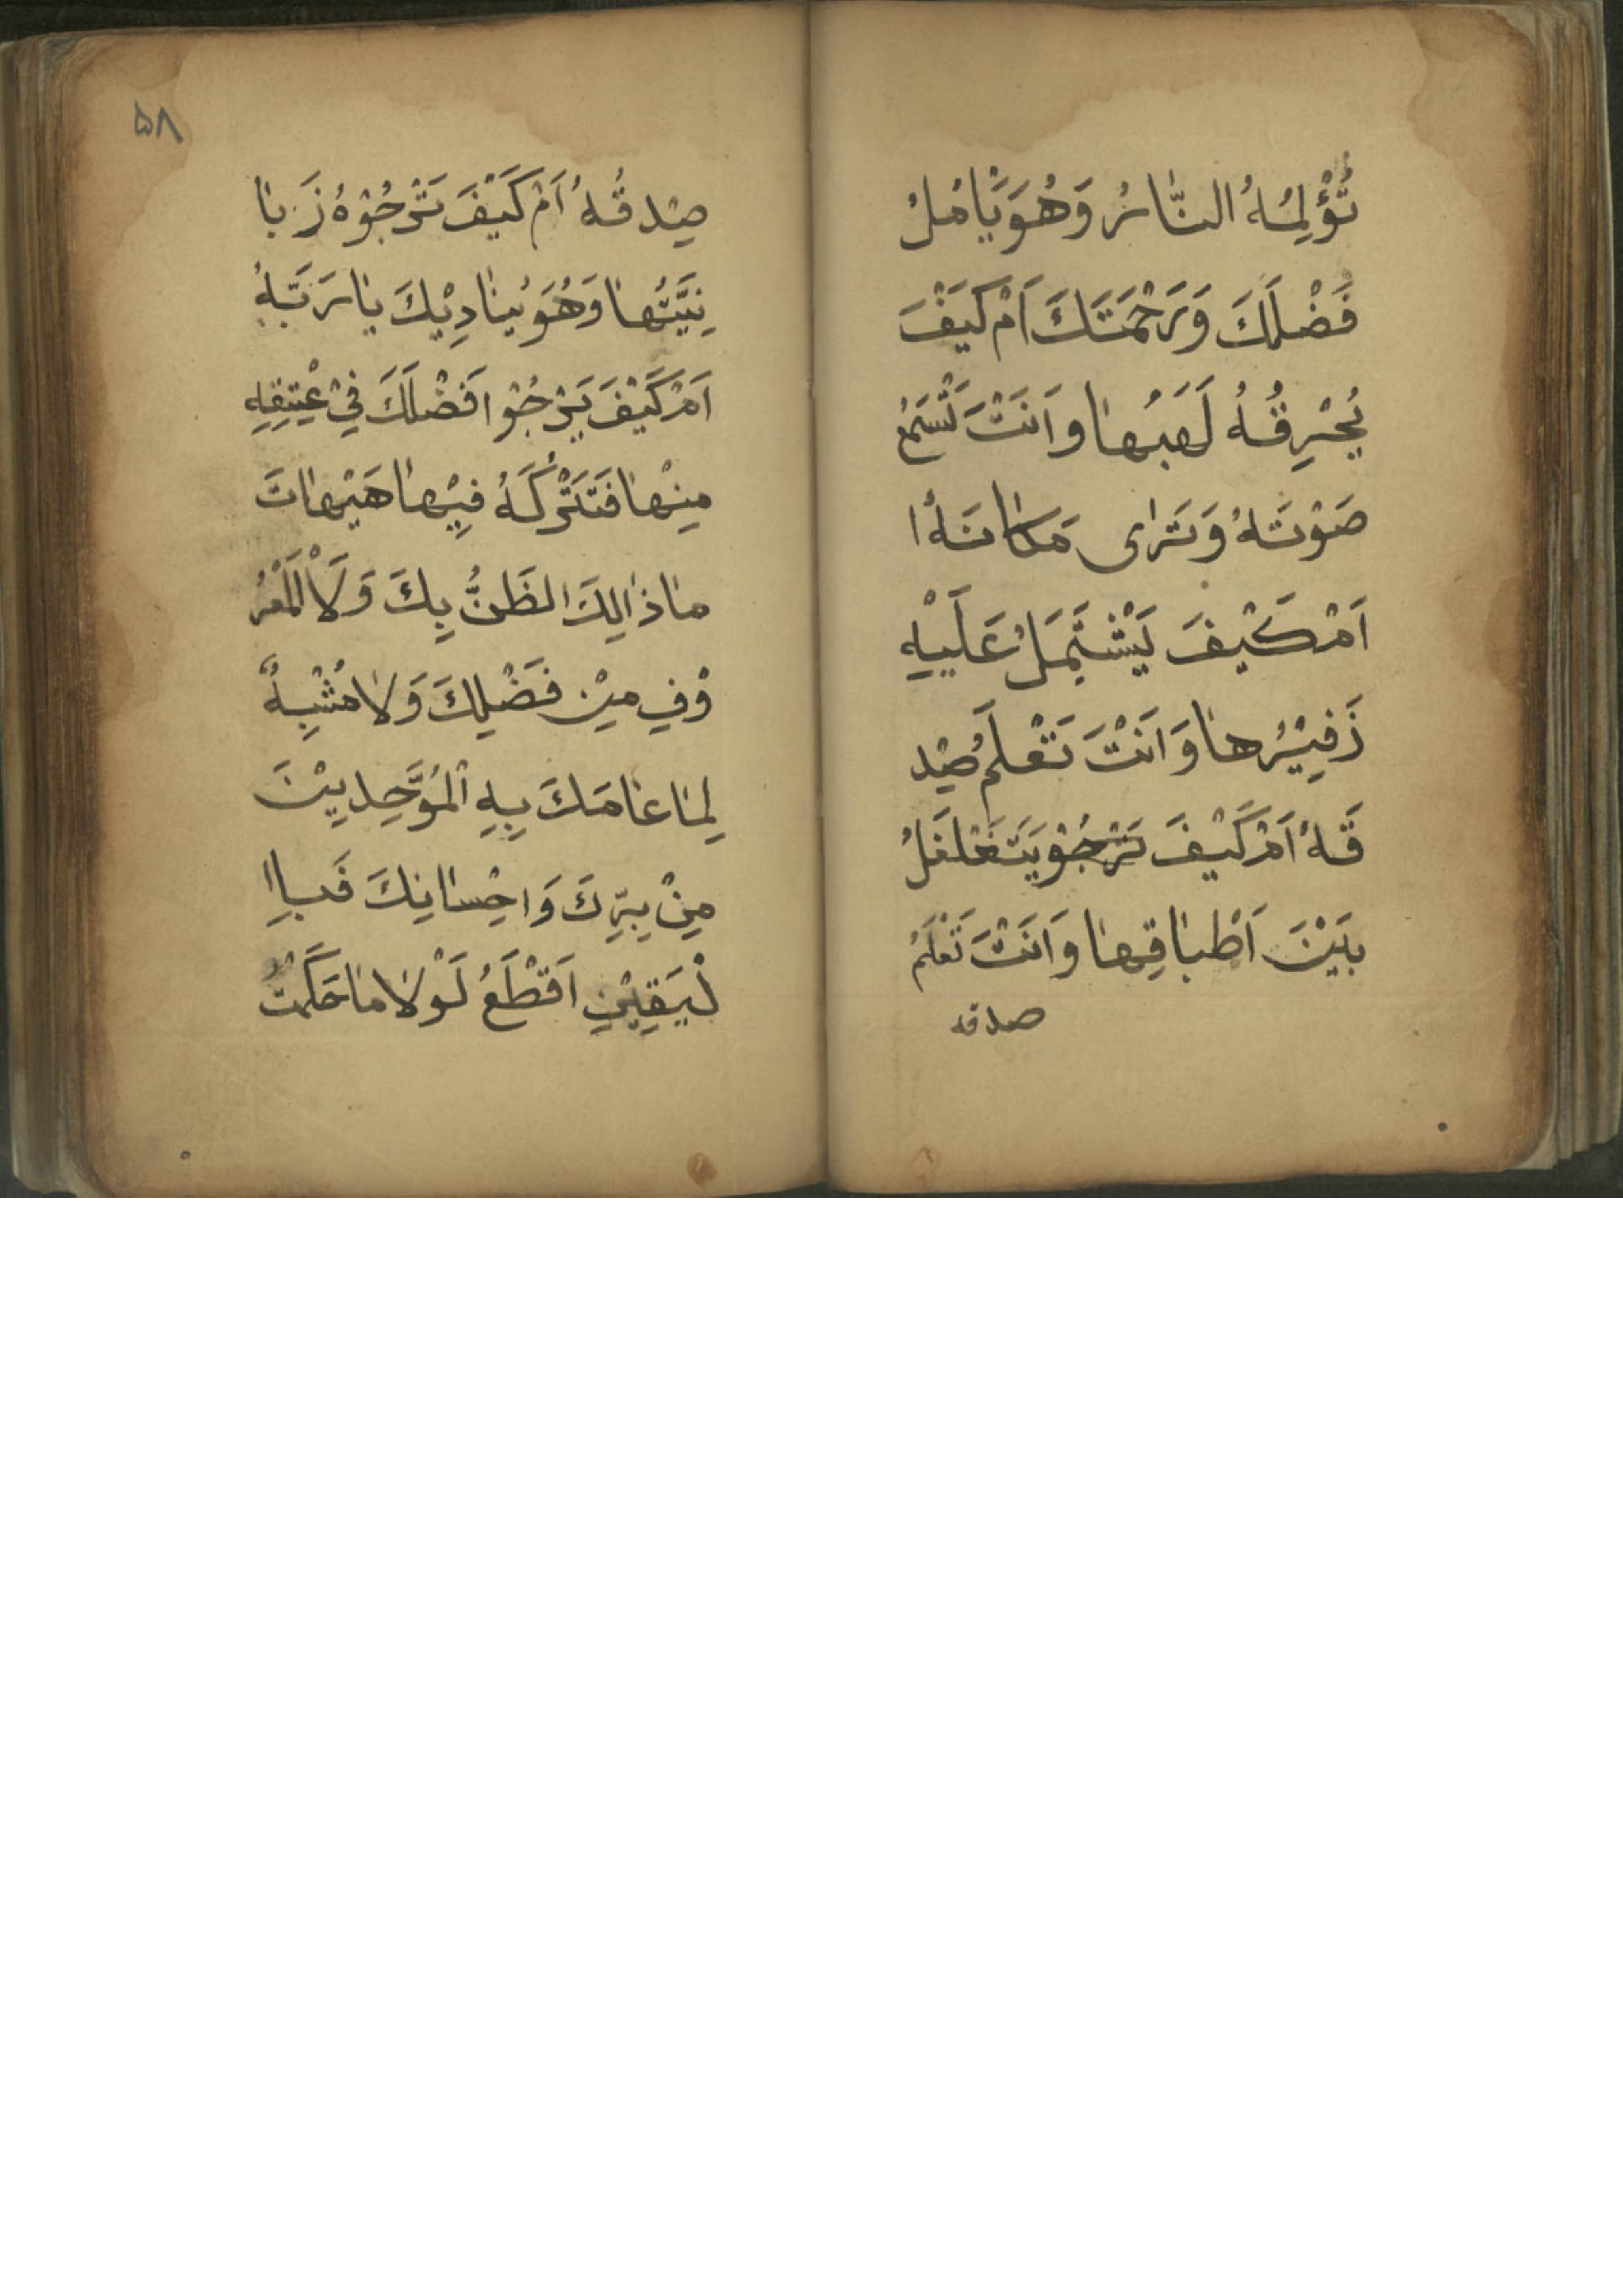 تُؤْلِمُهُ النَّارُ وَهُوَ يَاْمُلُ
فَضْلَكَ وَرَحْمَتَكَ اَمْ كَيْفَ
يُحْرِقُهُ لَهَبُها وَاَنْتَ تَسْمَعُ
صَوْتَهُ وَتَرٰى مَكانَهُ ا
اَمْ كَيْفَ يَشْتَمِلُ عَلَيْهِ
زَفِيْرُها وَاَنْتَ تَعْلَمُ صِدْ
قَهُ اَمْ كَيْفَ تَرْجُوْ يَتَغَلْغَلُ
بَيْنَ اَطْباقِها وَاَنْتَ تَعْلَمُ
صدقه
۵۸
صِدْقُهُ اَمْ كَيْفَ تَرْجُوْهُ زَبا
نِيَّتُها وَهُوَ يُنادِيْكَ يا رَبَّهُ
اَمْ كَيْفَ يَرْجُوْا فَضْلَكَ فِيْ عِتْقِهِ
مِنْها فَتَتْرُكَهُ فِيْها هَيْهاتَ
ما ذالِكَ الظَّنُّ بِكَ وَلَاْ الْمَعْرُ
وْفِ مِنْ فَضْلِكَ وَلا مُشْبِهٌ
لِما عامَكَ بِهِ الْمُوَحِّدِيْنَ
مِنْ بِرِّكَ وَاحِْسانِكَ فَباِ
لْيَقِيْنِ اَقْطَعُ لَوْلا ما حَكَمْتَ